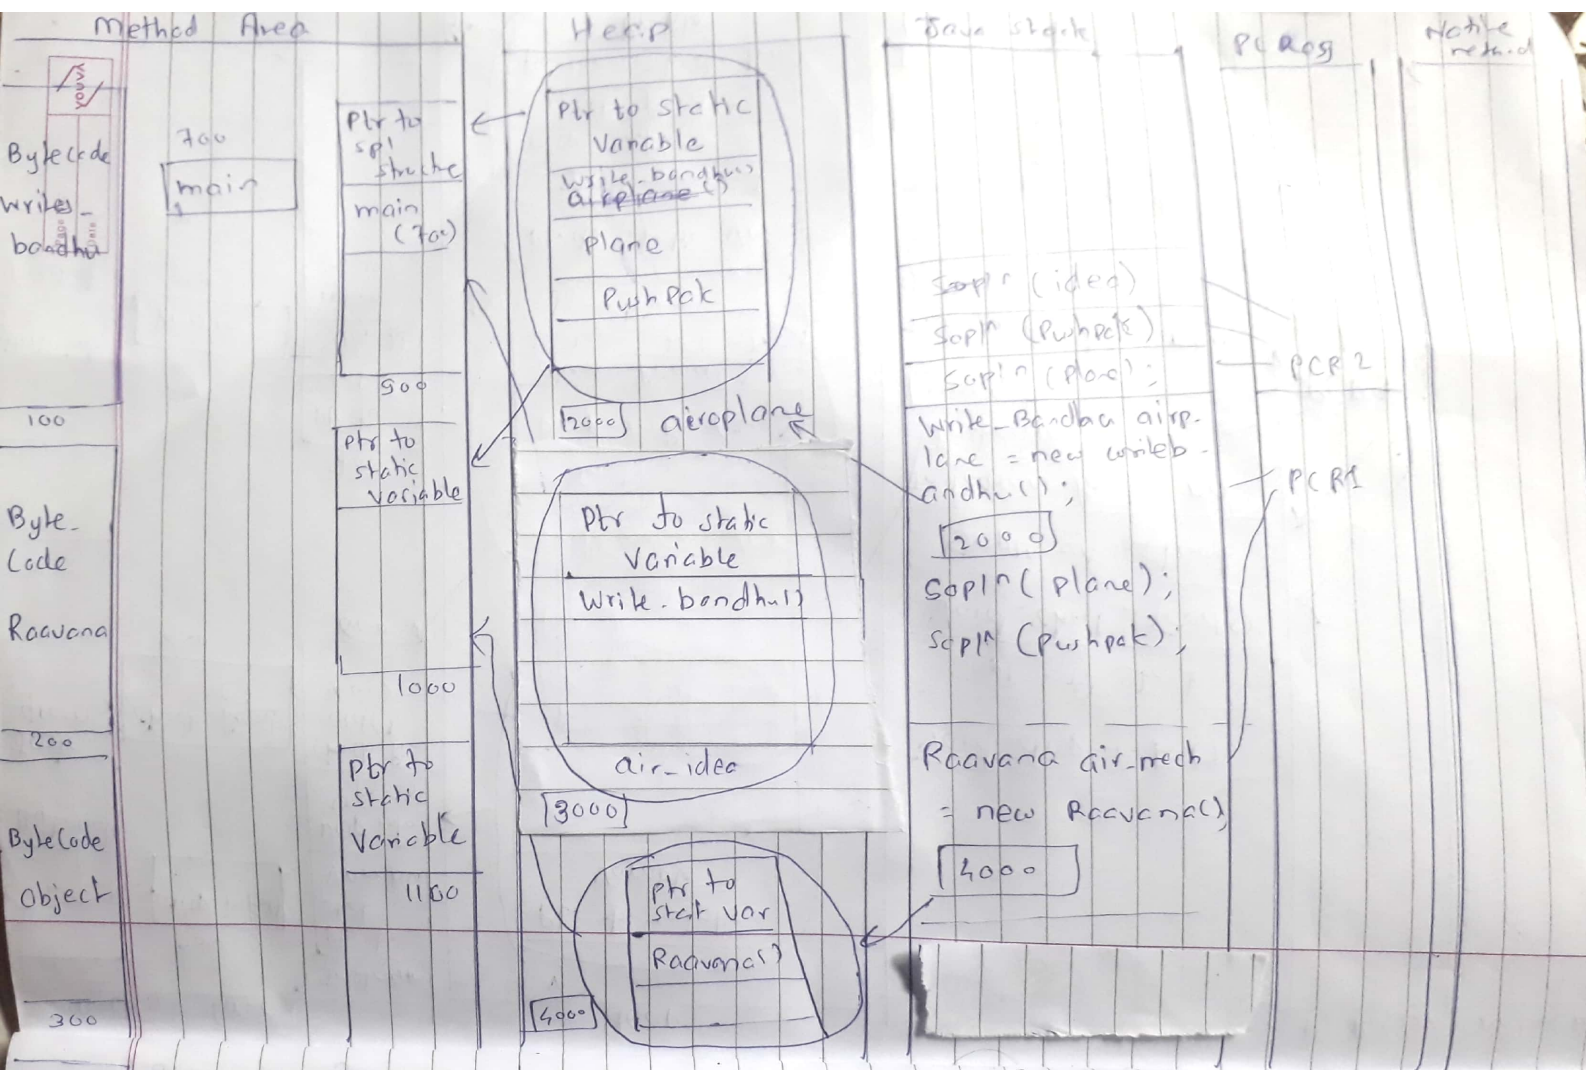 Method Area
Heap
Java stack
PC Reg
Native
method
YOUVA
Bytecode
Writes_
bandhu
100
Byte_
Code
Raavana
200
ByteCode
Object
300
700
main
Ptr to
spl
structre
main
(700)
900
Ptr to
static
variable
1000
Ptr to
static
Variable
1100
Ptr to static
Variable
Write_bandhu()
airplane()
Plane
PushPak
2000
aeroplane
Ptr to static
Variable
Write_bandhu()
air_idea
3000
ptr to
stat var
Raavana()
4000
Sopln (idea)
Sopln (Pushpak);
Sopln (Plane);
Write_Bandhu airp-
lane = new writeb-
andhu();
2000
Sopln( plane);
Sopln (Pushpak);
Raavana air_mech
= new Raavana()
4000
PCR 2
PCR1